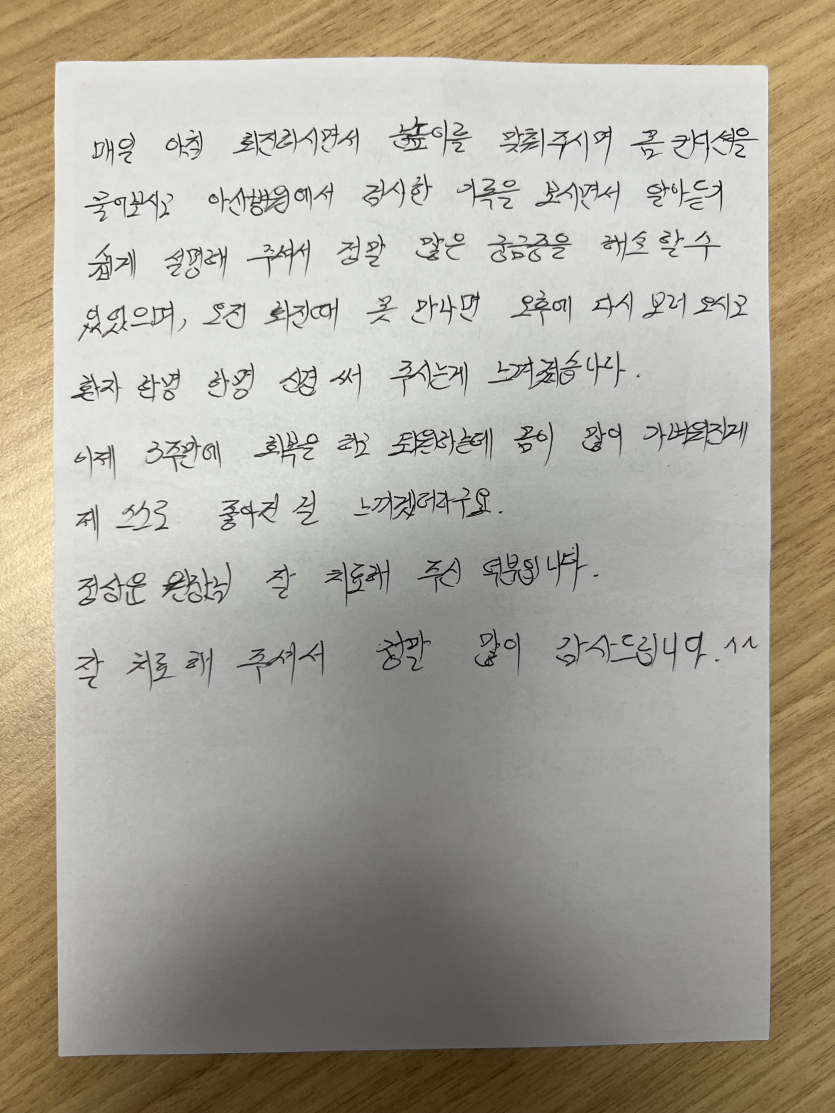 매일 아침 회진하시면서 눈높이를 맞춰주시며 몸 컨디션을
물어보시고 아산병원에서 검사한 기록을 보시면서 알아듣기
쉽게 설명해 주셔서 정말 많은 궁금증을 해소 할 수
있었으며, 오전 회진때 못 만나면 오후에 다시 보러 오시고
환자 한명 한명 신경 써 주시는게 느껴졌습니다.
이제 3주만에 회복을 하고 퇴원하는데 몸이 많이 가벼워진게
제 스스로 좋아진 걸 느끼겠더라구요.
정상운 원장님 잘 치료해 주신 덕분입니다.
잘 치료해 주셔서 정말 많이 감사드립니다.^^